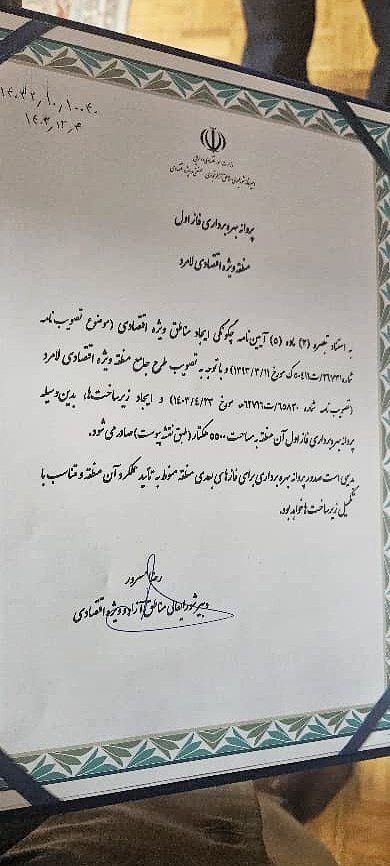 ۱۴۰۳٫۱۲٫۴
وزارت امور اقتصادی و دارایی
پروانه بهره برداری فاز اول
منطقه ویژه اقتصادی لامرد
به استناد تبصره (۲) ماده (۵) آیین‌نامه چگونگی ایجاد مناطق ویژه اقتصادی (موضوع تصویب‌نامه
مورخ ۱۳۹۴/۳/۱۱) و با توجه به تصویب طرح جامع منطقه ویژه اقتصادی لامرد
(تصویب نامه شماره ۶۵۸۳۰/ت۶۲۷۱۶هـ مورخ ۱۴۰۳/۴/۲۳) و ایجاد زیرساخت‌ها، بدین‌وسیله
پروانه بهره برداری فاز اول آن منطقه به مساحت ۵۵۰۰ هکتار (طبق نقشه پیوست) صادر می شود.
بدیهی است صدور پروانه بهره برداری برای فازهای بعدی منطقه منوط به تأیید عملکرد آن منطقه و متناسب با
تکمیل زیرساخت ها خواهد بود.
رضا مسرور
دبیر شورایعالی مناطق آزاد و ویژه اقتصادی